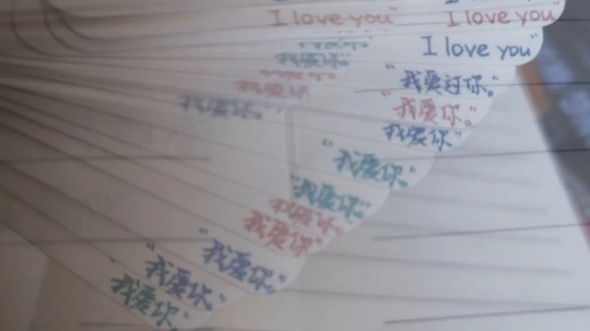 I love you" I love you"
I love you"
"我爱过你。"
我爱你
"我爱你。"
我爱你
"我爱你"
我爱你。"
"我爱你。"
"我爱你。"
我爱你
"我爱你"
"我爱你。"
"我爱你。
"我爱你。